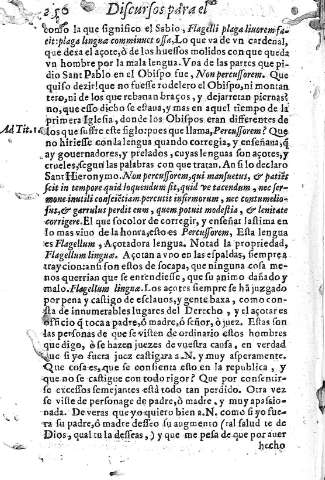 250 Discursos para el
conso la que significo el Sabio, Flagelli plaga liuorem fa-
cit: plaga lingua comminuet ossa, Lo que va de vn cardenal,
que dexa el açore, ó de los huessos molidos con que queda
vn hombre por la mala lengua. Vna de las partes que pi-
dio Sant Pablo en el Obispo fue, Non percussorem. Que
quiso dezir! que no fuesse rodelero el Obispo, ni montan
tero, ni de los que rebanan braços, y dejarretan piernas?
no, que esso dicho se estaua, y mas en aquel tiempo de la
primera Iglesia, donde los Obispos eran differentes de
Ad Tit. 1. los que suffre este siglo: pues que llama, Percussorem? Que
no hiriesse con la lengua quando corregia, y enseñana, q̃
ay gouernadores, y prelados, cuyas lenguas son açotes, y
crueles, segun las palabras con que tratan. An si lo declaro
Sant Hieronymo. Non percussorem, qui mansuetus, & patiẽs
scit in tempore quid loquendum sit, quid ve tacendum, nec ser-
mone inutili consciẽtiam percutit infirmorum, nec contumelio-
sus, & garrulus perdit eum, quem potuit modestia, & lenitate
corrigere. El que socolor de corregir, y enseñar lastima en
lo mas viuo de la honra, esto es Percussorem, Esta lengua
es Flagellum, Açotadora lengua. Notad la propriedad,
Flagellum linguæ. Açotan a vno en las espaldas, siempre a
traycion anfi son estos de socapa, que ninguna cosa me-
nos querrian que se entendiesse, que su animo dañado y
malo. Flagellum linguæ. Los açotes siempre se ha juzgado
por pena y castigo de esclauos, y gente baxa, como con-
sta de innumerables lugares del Derecho, y el açotar es
officio q̃ toca a padre, ó madre, ó señor, ó juez. Estas son
las personas de que se visten de ordinario estos hombres
que digo, ó se hazen juezes de vuestra causa, en verdad
que si yo fuera juez castigara a. N. y muy asperamente.
Que cosa es, que se consienta esto en la republica, y
que no se castigue con todo rigor? Que por consentir-
se excessos semejantes está todo tan perdido. Otra vez
se viste de personage de padre, ó madre, y muy apassio-
nada. De veras que yo quiero bien a. N. como si yo fue-
ra su padre, ó madre desseo su augmento (tal salud te de
Dios, qual tu la desseas,) y que me pesa de que por auer
hecho